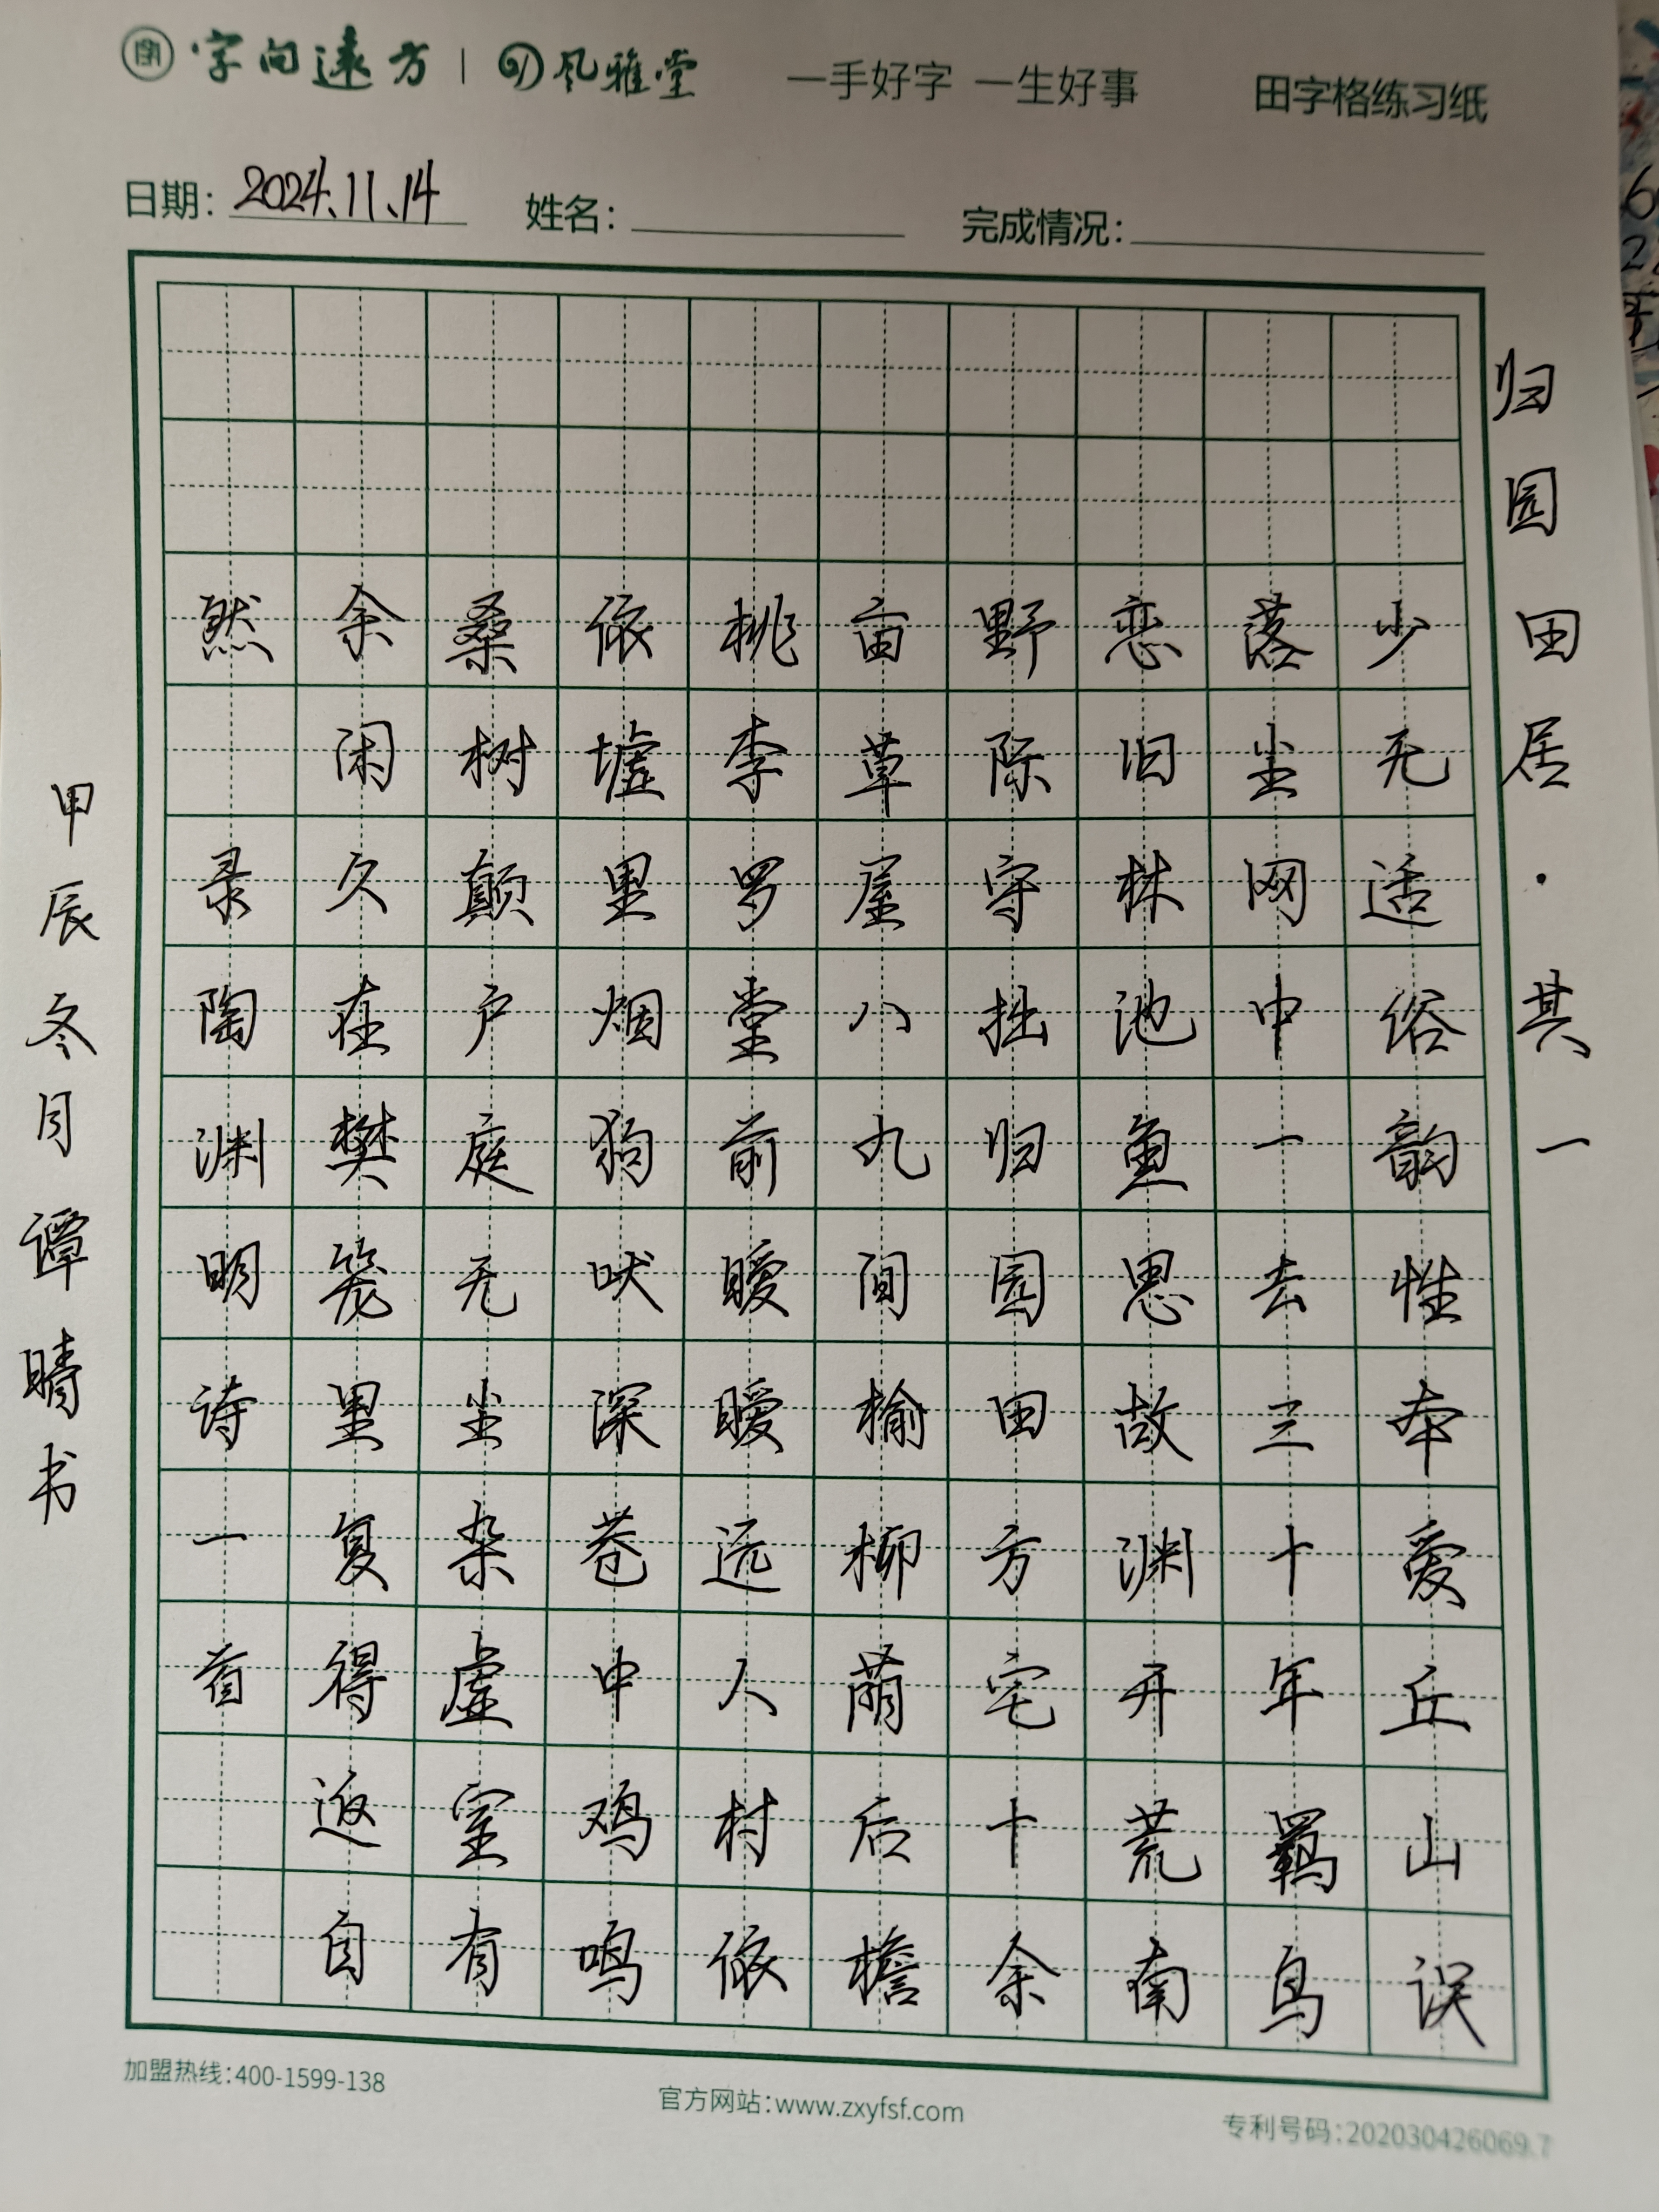 字向遠方 | 风雅堂 一手好字 一生好事 田字格练习纸
日期：2024.11.14 姓名： 完成情况：
归园田居·其一
少无适俗韵性本爱丘山误
落尘网中一去三十年羁鸟
恋旧林池鱼思故渊开荒南
野际守拙归园田方宅十余
亩草屋八九间榆柳荫后檐
桃李罗堂前暧暧远人村依
依墟里烟狗吠深苍中鸡鸣
桑树颠户庭无尘杂虚室有
余闲久在樊笼里复得返自
然 录陶渊明诗一首
甲辰冬月谭晴书
加盟热线：400-1599-138 官方网站：www.zxyfsf.com 专利号码：202030426069.7